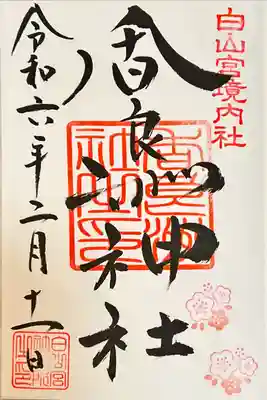 白山宮境内社
香良洲神社
令和六年二月十一日